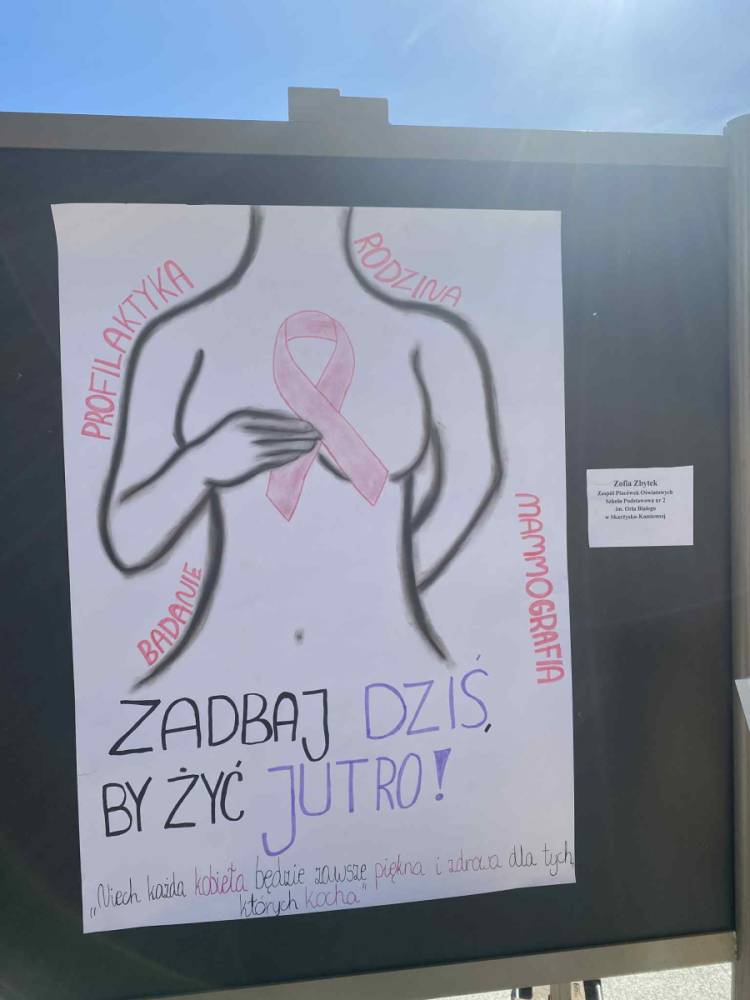 PROFILAKTYKA
RODZINA
BADANIE
MAMMOGRAFIA
ZADBAJ DZIŚ,
BY ŻYĆ JUTRO!
„Niech każda kobieta będzie zawsze piękna i zdrowa dla tych,
których kocha"
Zofia Zbytek
Zespół Placówek Oświatowych
Szkoła Podstawowa nr 2
im. Orła Białego
w Skarżysku-Kamiennej